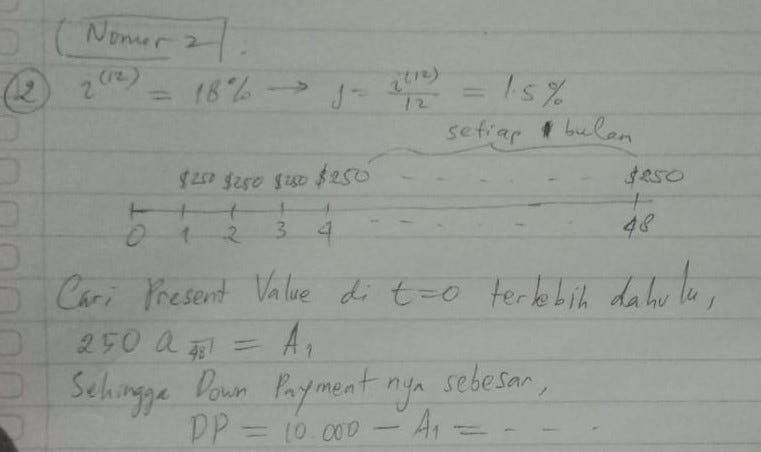 Nomor 2
2 i^(12) = 18% → j = i^(12)/12 = 1.5%
setiap bulan
$250 $250 $250 $250 - - - - - $250
0 1 2 3 4 - - - - - 48
Cari Present Value di t=0 terlebih dahulu,
250 a 48̅| = A₁
Sehingga Down Payment nya sebesar,
DP = 10.000 - A₁ = - - - .